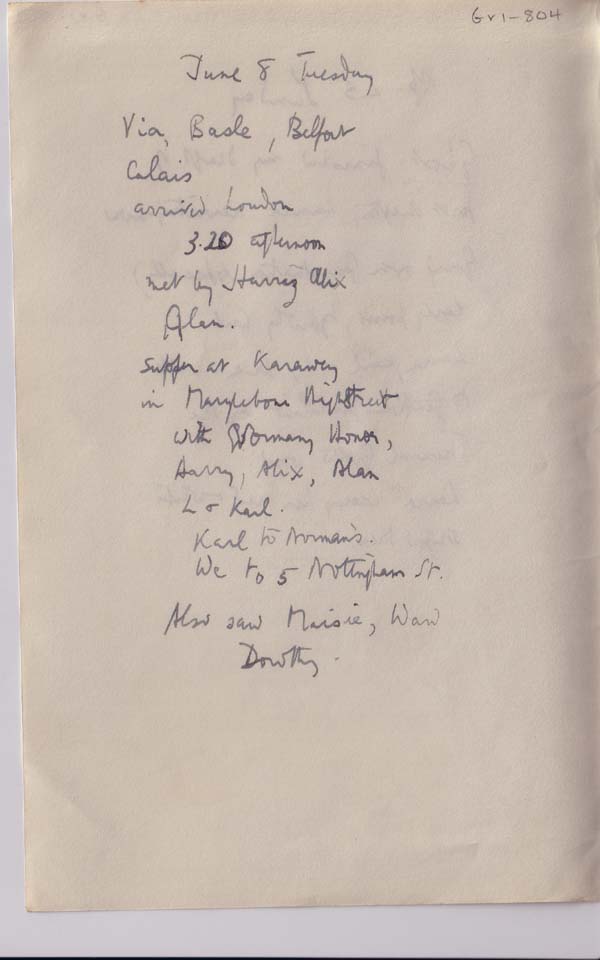 GV1-804
June 8 Tuesday
Via, Basle, Belfort
Calais
arrived London
3.20 afternoon
met by Harry Alix
Alan.
supper at
in Marylebone Highstreet
with Norman, Honor,
Harry, Alix, Alan
L & Karl.
Karl to Norman's.
We to 5 Nottingham St.
Also saw Maisie,
Dorothy.